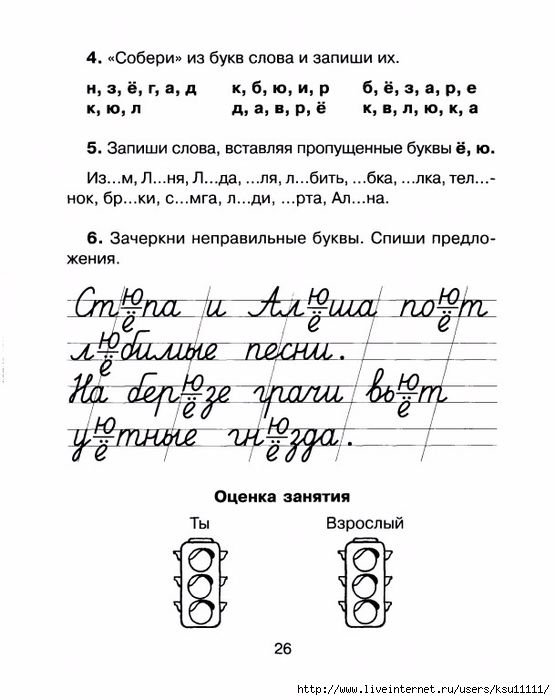 4. «Собери» из букв слова и запиши их.
н, з, ё, г, а, д к, б, ю, и, р б, ё, з, а, р, е
к, ю, л д, а, в, р, ё к, в, л, ю, к, а
5. Запиши слова, вставляя пропущенные буквы ё, ю.
Из...м, Л...ня, Л...да, ...ля, л...бить, ...бка, ...лка, тел...-
нок, бр...ки, с...мга, л...ди, ...рта, Ал...на.
6. Зачеркни неправильные буквы. Спиши предло-
жения.
Стю/ёпа и Алю/ёша пою/ёт
лю/ёбимые песни.
На берю/ёзе грачи вью/ёт
ую/ётные гню/ёзда.
Оценка занятия
Ты Взрослый
26
http://www.liveinternet.ru/users/ksu11111/